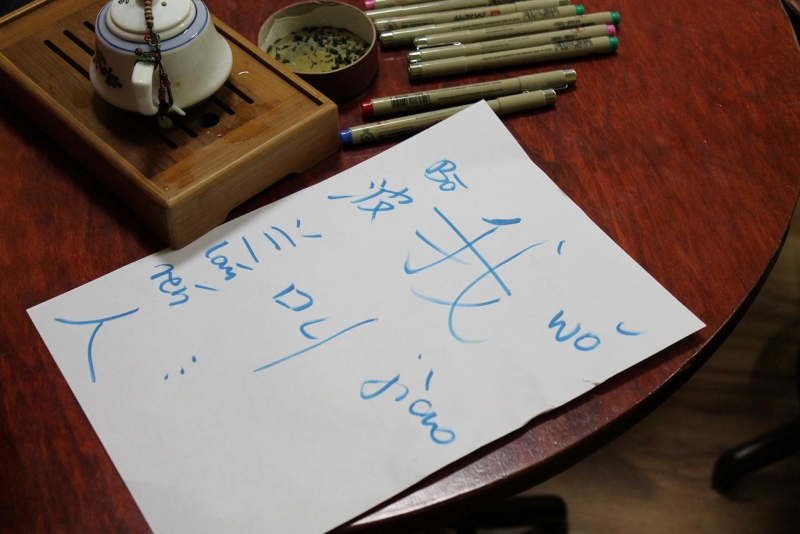 我 wǒ
叫 jiào
...
Bō
波
兰
lán
rén
人